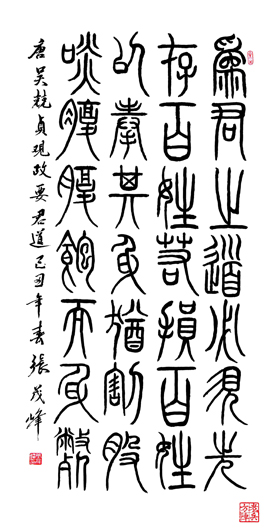 為君之道必須先
存百姓若損百姓
以奉其身猶割股
啖腹腹飽而身斃
唐吳兢貞觀政要君道己丑年春張茂峰